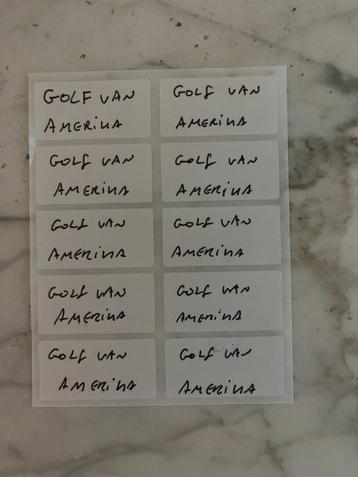 GOLF VAN
AMERIKA
GOLF VAN
AMERIKA
GOLF VAN
AMERIKA
GOLF VAN
AMERIKA
GOLF VAN
AMERIKA
GOLF VAN
AMERIKA
GOLF VAN
AMERIKA
GOLF VAN
AMERIKA
GOLF VAN
AMERIKA
GOLF VAN
AMERIKA